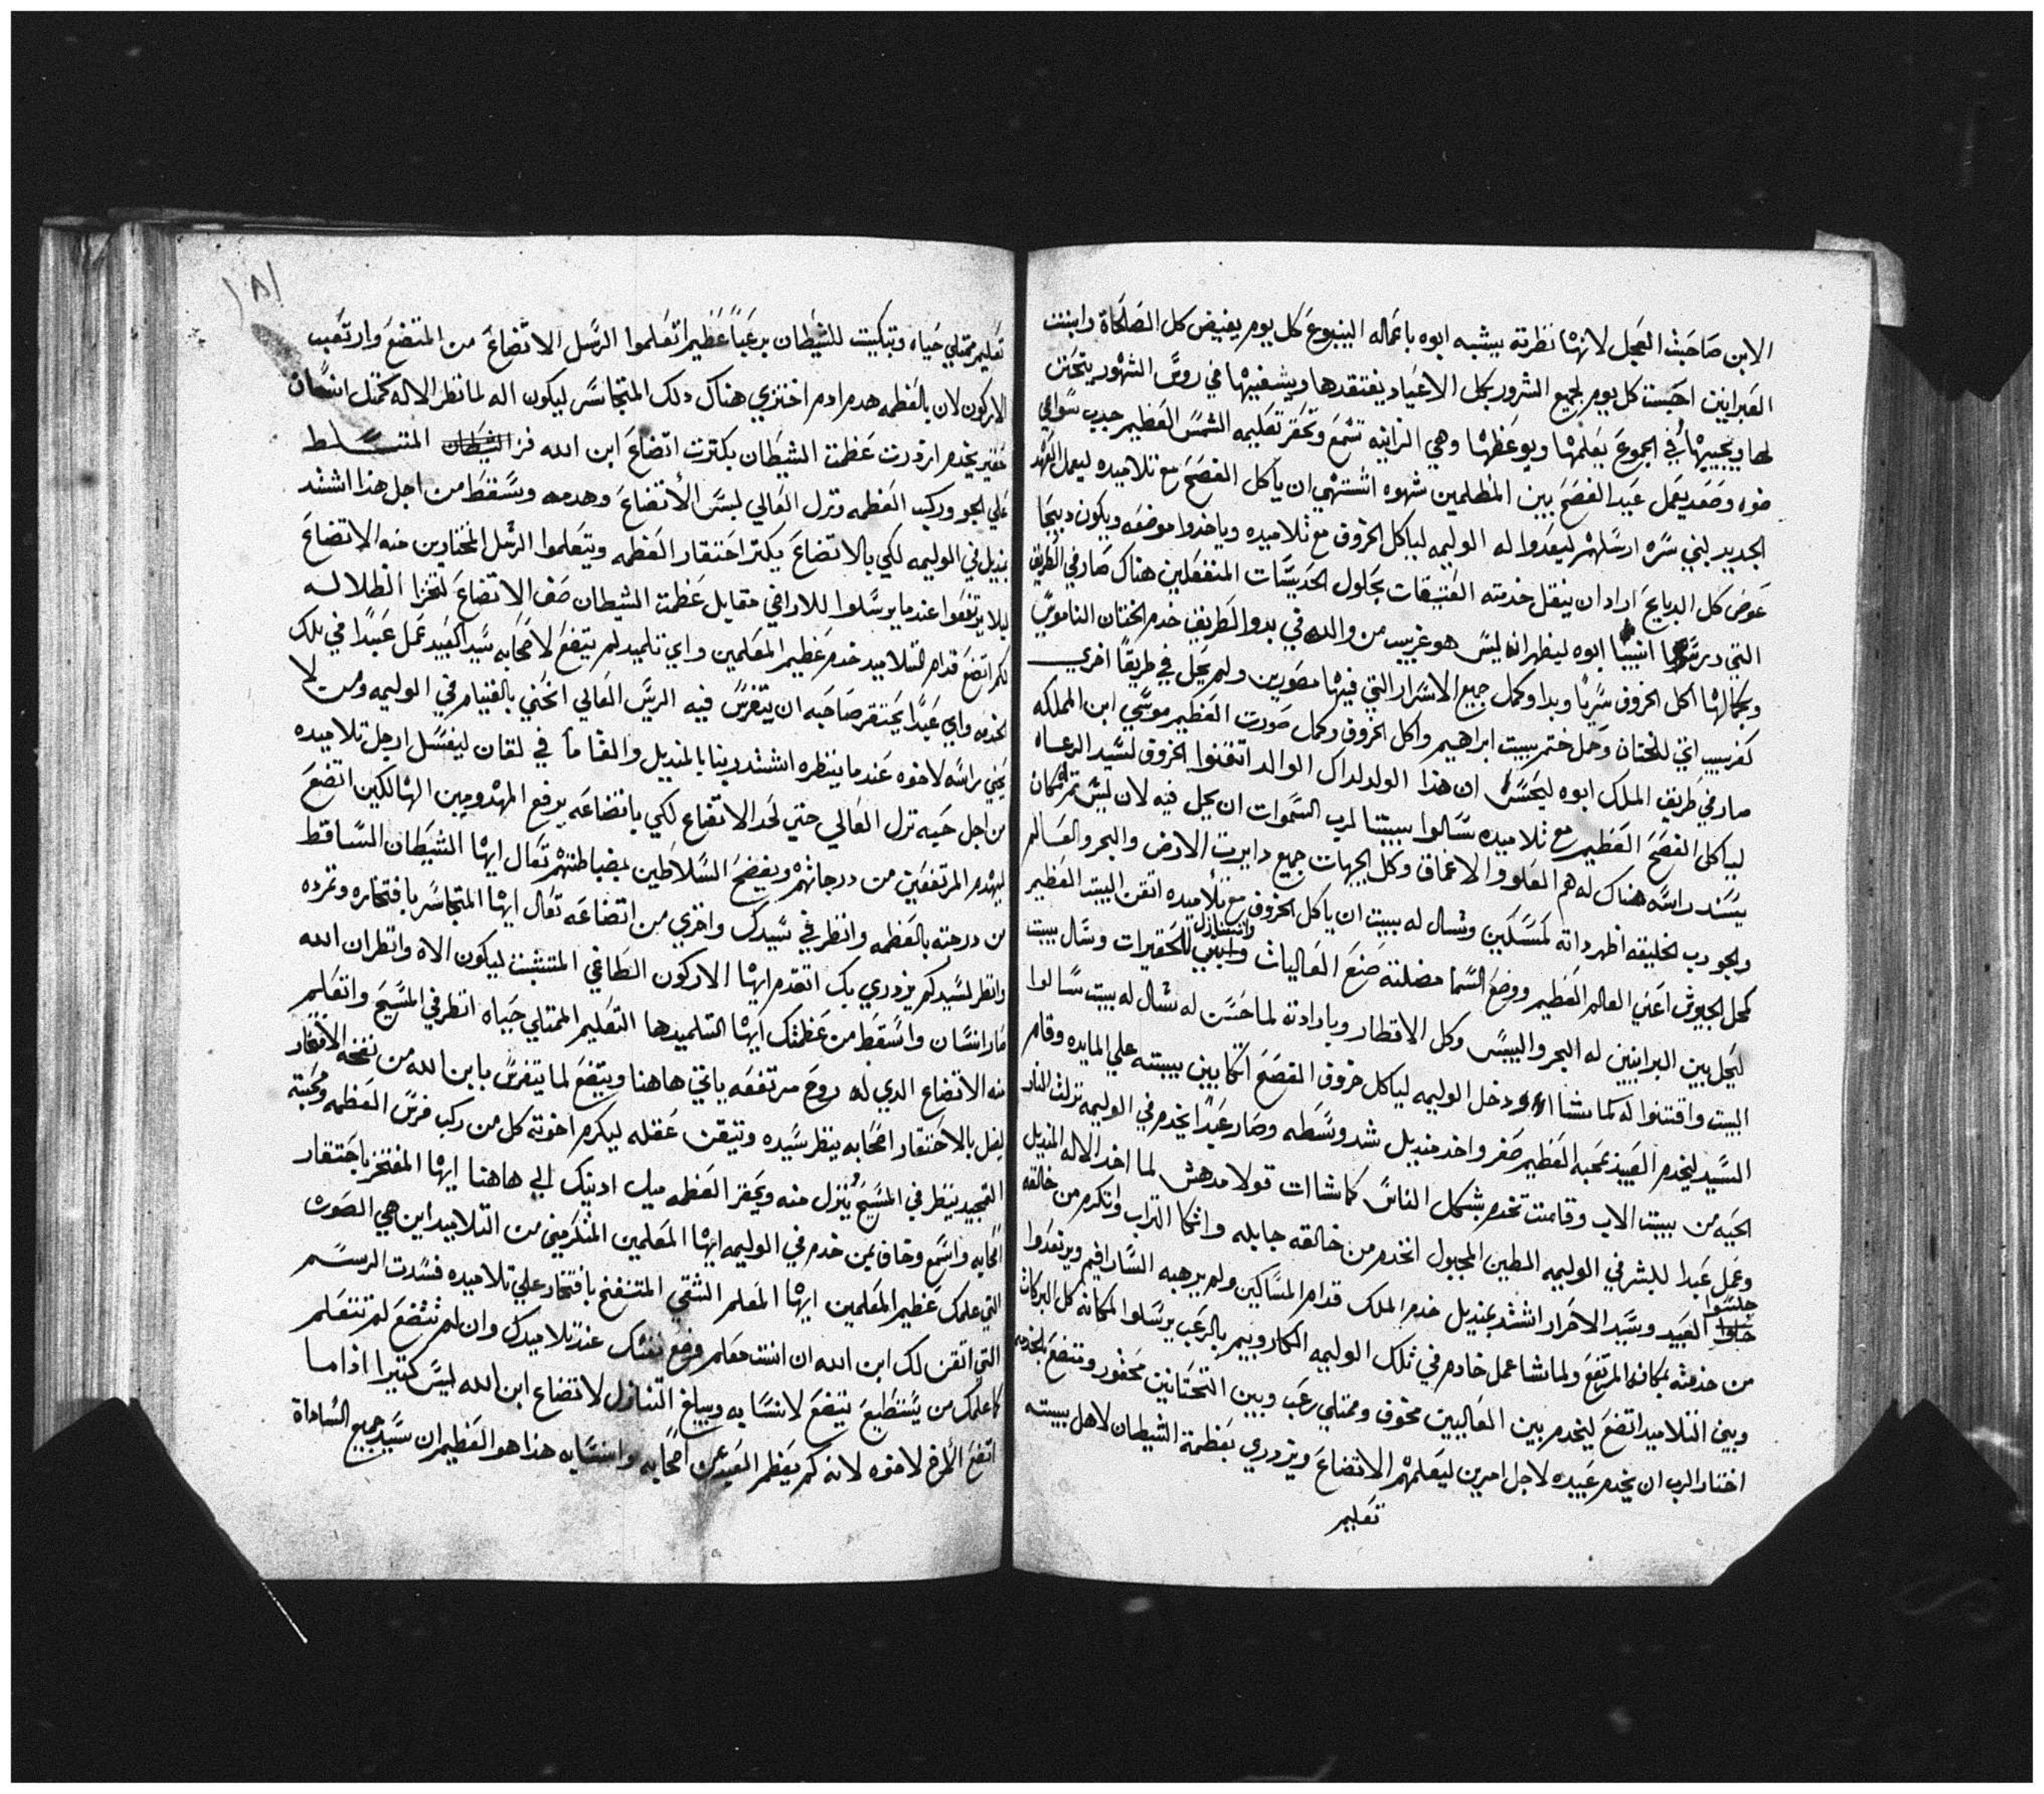 الابن صاحبت العجل لانها نظرته يشبه ابوه باعماله الينبوع كل يوم يفيض كل الصلحاة وابنت
العبرانين احببت كل يوم لجميع الشرور بكل الاعياد يفتقدها ويشفيها في روس الشهور يتحنن
لها ويجيبها في الجموع يعلمها ويوعظها وهي الزانيه تشمع وتحقر تعليمه الشمس العظيم جدب سواقي
ضوه وصعد يعمل عيد الفصح بين المظلمين شهوه اشتهي ان ياكل الفصح مع تلاميده ليعمل العهد
الجديد لبني سره ارسلهم ليعدوا له الوليمه لياكل الخروف مع تلاميده وياخدوا موضعه ويكون دبيحا
عوض كل الدبايح اراد ان ينقل خدمته العتيقات بحلول الحديثات المنفعلين هناك صار في الطريق
التي انبيا ابوه ليظهر انه ليس هو غريب من والده في بدو الطريق خدم الختان الناموسي
وبكمالها اكل الخروف سريا وبدا وكمل جميع الاسرار التي فيها مصورين ولم يحل في طريقا اخري
كغريب اتي للختان وحل ختم بيت ابراهيم واكل الخروف وكمل صورت العظيم موسي ابن المملكه
صار في طريق الملك ابوه ليحسس ان هذا الولد لداك الوالد اتقنوا الخروف لسيد الرعاه
لياكل الفصح العظيم مع تلاميده سالوا بيتا لرب السموات ان يحل فيه لان ليس تم مكان
يسند راسه هناك له هم العلو والاعماق وكل الجهات جميع دايرت الارض والبحر والعالم
ولجود رب الخليقه اظهر داته لمسكين وسال له بيت ان ياكل الخروف مع تلاميده اتقن البيت العظيم
كحل الجيوش اعني العالم العظيم ووضع السما مضلته صنع العاليات وابني وانسنازل للحقيرات وسال بيت
ليحل بين البرانيين له البحر واليبس وكل الاقطار وبارادته لما حسن له سال له بيت سالوا
البيت واقتنوا له كما شا ودخل الوليمه لياكل خروف الفصح اتكا بين بيته علي المايده وقام
السيد ليخدم العبيد بمحبه العظيم صغر واخد منديل شد وسطه وصار عبدا يخدم في الوليمه نزلت النار
الحيه من بيت الاب وقامت تخدم بشكل الناس كما شاات قولا مدهش لما اخد الاله المنديل
وعمل عبدا للبشر في الوليمه الطين المجبول اتخدم من خالقه جابله واتكا التراب واتكرم من خالقه
جلسوا العبيد وسيد الاحرار اشتد بمنديل خدم الملك قدام المساكين ولم يرهبه السارافيم ويرتعدوا
من خدمته بمكانه المرتفع ولما شا عمل خادم في تلك الوليمه الكاروبيم بالرعب يرسلوا لمكانه كل البركات
وبين التلاميد اتضع ليخدم بين العاليين مخوف وممتلي رعب وبين التحتانين محقور ومتضع للخدمه
اختار الرب ان يخدم عبيده لاجل امرين ليعلمهم الاتضاع ويزدري بعظمة الشيطان لاهل بيته
تعليم
١٨١
تعليم ممتلي حياه وتبكيت للشيطان برعبا عظيم اتعلموا الرسل الاتضاع من المتضع وارتعب
الاركون لان بالعظمه هدم ادم اختزي هناك دلك المتجاسر ليكون اله لما نظر الاله كمتل انسان
حقير يخدم ازدرت عظمت الشيطان بكترت اتضاع ابن الله فز الشيطان المتسلط
علي الجو وركب العظمه ونزل العالي لبس الاتضاع وهدمه وسقط من اجل هذا اشتد
بمنديل في الوليمه لكي بالاتضاع يكتر احتقار العظمه ويتعلموا الرسل المختارين منه الاتضاع
ليلا يرتفعوا عندما يرسلوا للاراضي مقابل عظمت الشيطان صف الاتضاع لتخزا الظلاله
لكم اتضع قدام التلاميد خدم عظيم المعلمين واي تلميد لم يتضع لاصحابه سيد العبيد عمل عبدا في تلك
الخدمه واي عبدا يحتقر صاحبه ان يتفرس فيه الريس العالي انحني بالقيام في الوليمه ومن لا
يحني براسه لاخوه عندما ينظره اشتد ربنا بالمنديل والقا ما في لقان ليغسل ارجل تلاميده
من اجل حبه نزل العالي حتي لحد الاتضاع لكي باتضاعه يرفع المهدومين الهالكين اتضع
ليهدم المرتفعين من درجاتهم ويفضح السلاطين بضباطتهم تعال ايها الشيطان الساقط
من درجته بالعظمه وانظر في سيدك واخزي من اتضاعه تعال ايها المتجاسر بافتخاره وتمرده
وانظر لسيدكم يزدري بك اتقدم ايها الاركون الطاغي المتشبت ليكون الاه وانظر ان الله
صار انسان واسقط من عظمتك ايها التلميد ها التعليم الممتلي حياه انظر في المسيح واتعلم
منه الاتضاع الدي له روح مرتفعه ياتي هاهنا ويتضع لما يتفرس بابن الله من نفخه الافتخار
يفل بالاحتقار اصحابه ينظر سيده ويتيقن عقله ليكرم اخوته كل من ركب فرس العظمه ومحبته
التمجيد ينظر في المسيح ينزل منه ويحقر العظمه ميل ادنيك الي هاهنا ايها المفتخر باحتقار
اصحابه واسمع وخاف ممن خدم في الوليمه ايها المعلمين المتكرمين من التلاميد اين هي الصورت
التي علمك عظيم المعلمين ايها المعلم الشقي المتنفخ بافتخار علي تلاميده فسدت الرسم
التي اتقن لك ابن الله ان انت معلم وضع نفسك عند تلاميدك وان لم تتضع لم تتعلم
كما علمك من يستطيع يتضع لانسابه ويبلغ التنازل لاتضاع ابن الله ليس كتيرا اذا ما
اتضع المرء لاخوه لانه كم يعظم العبد عن اصحابه وانسابه هذا هو العظيم ان سيد جميع الساداة